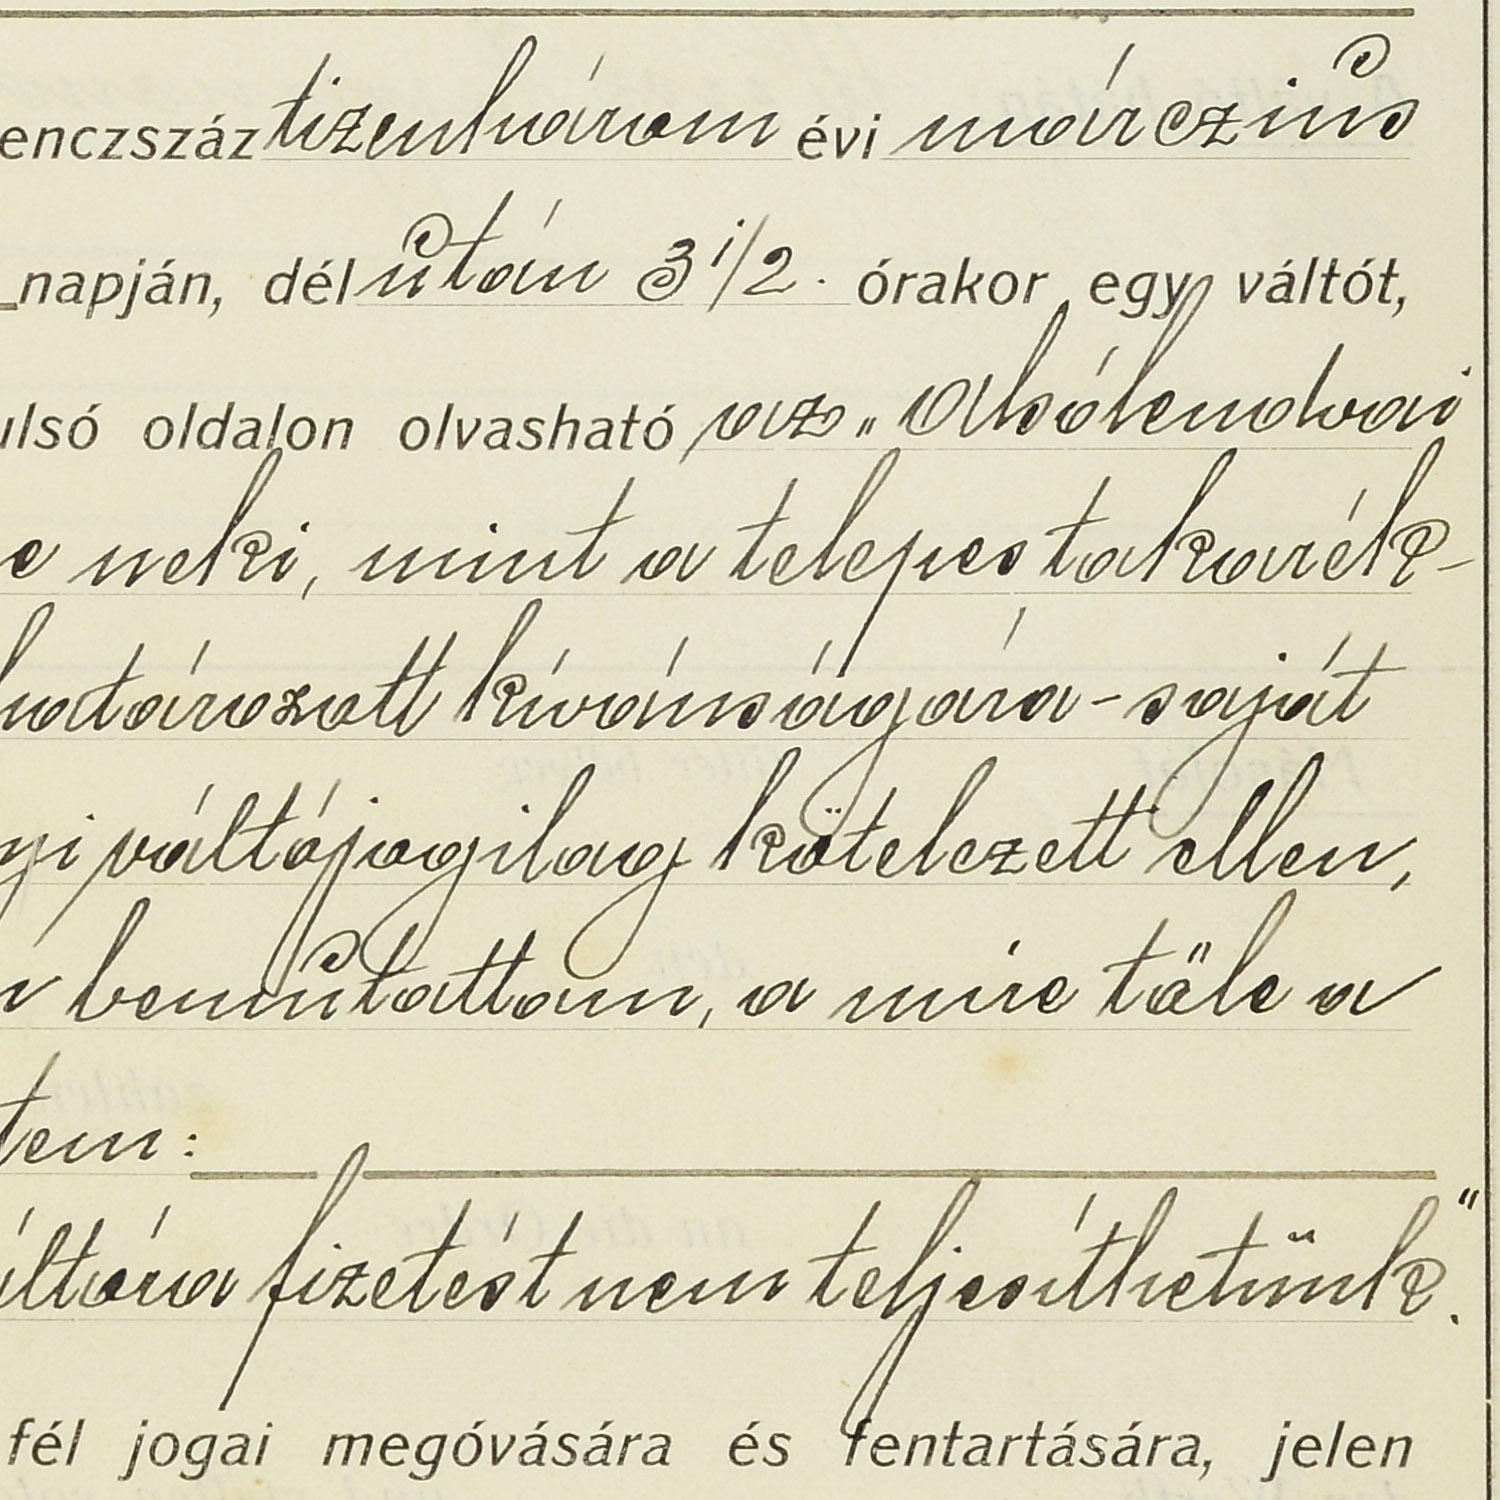 enczszáz tizenhárom évi márczius
napján, dél után 3 1/2. órakor egy váltót,
ulsó oldalon olvasható az „Alsólendvai
e neki, mint a telepes takarék-
határozott kívánságára - saját
yi váltójogilag kötelezett ellen,
n bemutattam, a mire tőle a
tem:
áltóra fizetést nem teljesíthetünk."
fél jogai megóvására és fentartására, jelen